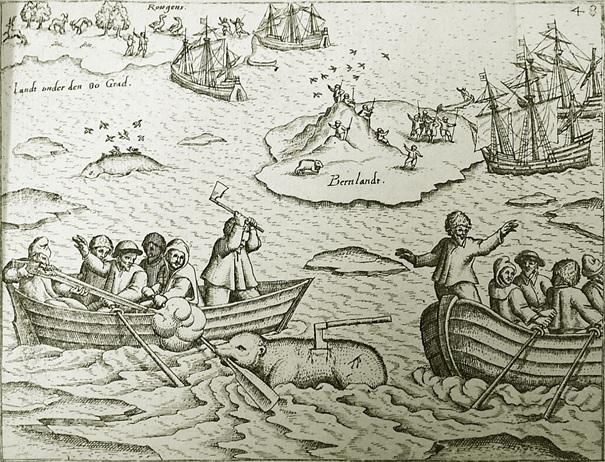 48
Rotgens.
Landt onder den 80 Grad.
Bernlandt.